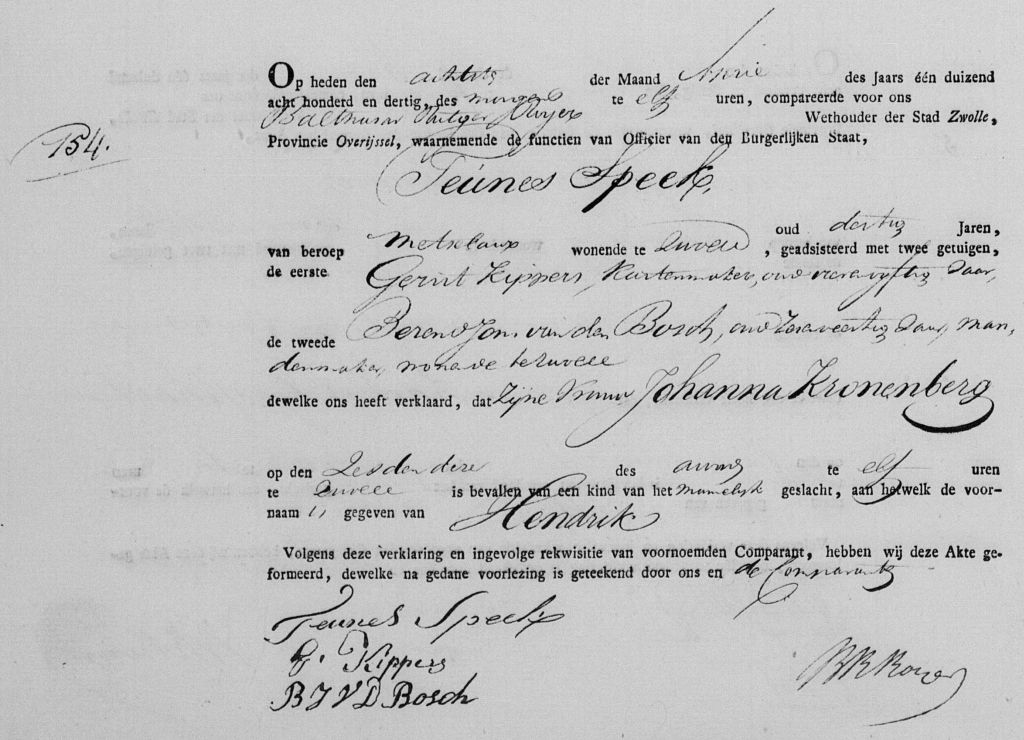 154.
Op heden den achtste der Maand April des Jaars één duizend
acht honderd en dertig, des morgens te elf uren, compareerde voor ons
Balthasar Rutger Wethouder der Stad Zwolle,
Provincie Overijssel, waarnemende de functien van Officier van den Burgerlijken Staat,
Teunes Speek,
oud dertig Jaren,
van beroep Metselaar wonende te Zwolle, geadsisteerd met twee getuigen,
de eerste Gerrit Kippers, oud vier en vyftig Jaar,
de tweede Berend Jan van den Bosch, oud Jaar, Man-
denmaker, wonende te Zwolle
dewelke ons heeft verklaard, dat Zijne Vrouw Johanna Kronenberg
op den Zesden dezer des avonds te elf uren
te Zwolle is bevallen van een kind van het Mannelijk geslacht, aan hetwelk de voor-
naam is gegeven van Hendrik
Volgens deze verklaring en ingevolge rekwisitie van voornoemden Comparant, hebben wij deze Akte ge-
formeerd, dewelke na gedane voorlezing is geteekend door ons en de Comparanten
Teunes Speek
G. Kippers
B J V D Bosch